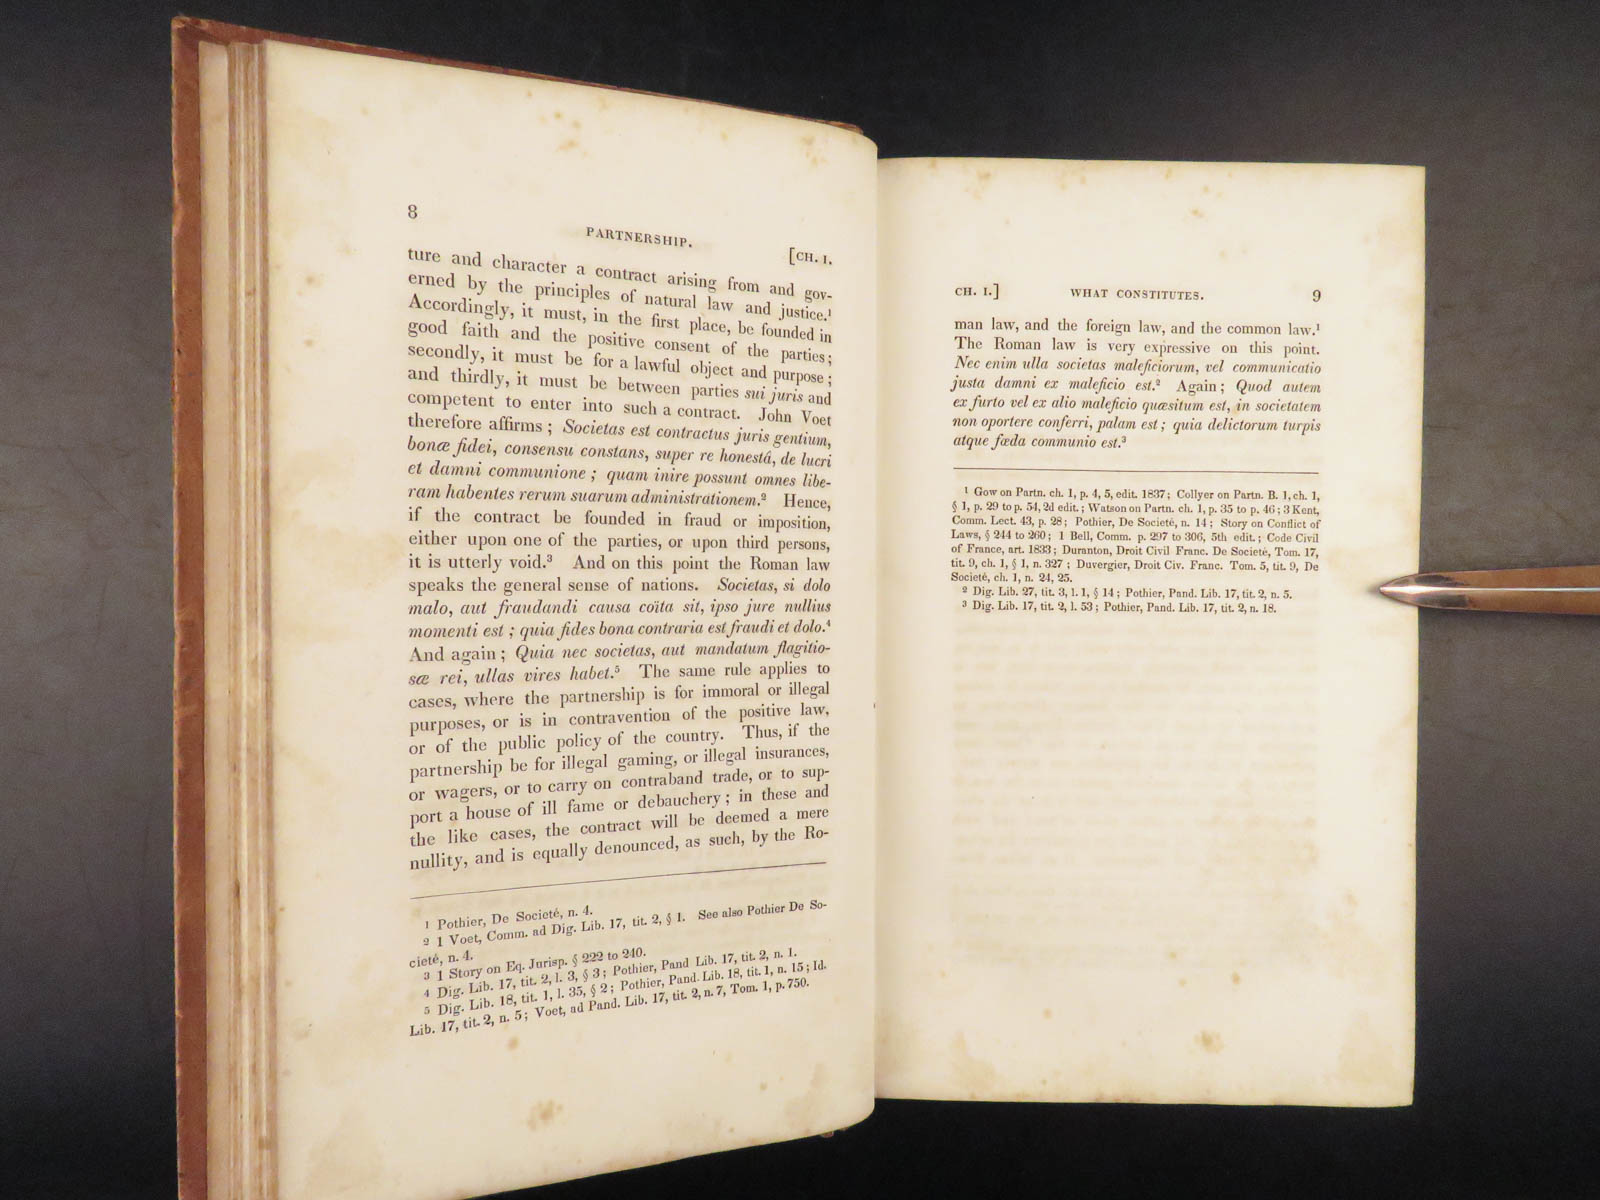 8
PARTNERSHIP.
[CH. I.
ture and character a contract arising from and gov-
erned by the principles of natural law and justice.¹
Accordingly, it must, in the first place, be founded in
good faith and the positive consent of the parties;
secondly, it must be for a lawful object and purpose;
and thirdly, it must be between parties sui juris and
competent to enter into such a contract. John Voet
therefore affirms; Societas est contractus juris gentium,
bonæ fidei, consensu constans, super re honestâ, de lucri
et damni communione; quam inire possunt omnes libe-
ram habentes rerum suarum administrationem.² Hence,
if the contract be founded in fraud or imposition,
either upon one of the parties, or upon third persons,
it is utterly void.³ And on this point the Roman law
speaks the general sense of nations. Societas, si dolo
malo, aut fraudandi causa coïta sit, ipso jure nullius
momenti est; quia fides bona contraria est fraudi et dolo.⁴
And again; Quia nec societas, aut mandatum flagitio-
sæ rei, ullas vires habet.⁵ The same rule applies to
cases, where the partnership is for immoral or illegal
purposes, or is in contravention of the positive law,
or of the public policy of the country. Thus, if the
partnership be for illegal gaming, or illegal insurances,
or wagers, or to carry on contraband trade, or to sup-
port a house of ill fame or debauchery; in these and
the like cases, the contract will be deemed a mere
nullity, and is equally denounced, as such, by the Ro-
¹ Pothier, De Societé, n. 4.
² 1 Voet, Comm. ad Dig. Lib. 17, tit. 2, § 1. See also Pothier De So-
cieté, n. 4.
³ 1 Story on Eq. Jurisp. § 222 to 240.
⁴ Dig. Lib. 17, tit. 2, l. 3, § 3; Pothier, Pand Lib. 17, tit. 2, n. 1.
⁵ Dig. Lib. 18, tit. 1, l. 35, § 2; Pothier, Pand. Lib. 18, tit. 1, n. 15; Id.
Lib. 17, tit. 2, n. 5; Voet, ad Pand. Lib. 17, tit. 2, n. 7, Tom. 1, p. 750.
CH. I.] WHAT CONSTITUTES. 9
man law, and the foreign law, and the common law.¹
The Roman law is very expressive on this point.
Nec enim ulla societas maleficiorum, vel communicatio
justa damni ex maleficio est.² Again; Quod autem
ex furto vel ex alio maleficio quæsitum est, in societatem
non oportere conferri, palam est; quia delictorum turpis
atque fœda communio est.³
¹ Gow on Partn. ch. 1, p. 4, 5, edit. 1837; Collyer on Partn. B. 1, ch. 1,
§ 1, p. 29 to p. 54, 2d edit.; Watson on Partn. ch. 1, p. 35 to p. 46; 3 Kent,
Comm. Lect. 43, p. 28; Pothier, De Societé, n. 14; Story on Conflict of
Laws, § 244 to 260; 1 Bell, Comm. p. 297 to 306, 5th edit.; Code Civil
of France, art. 1833; Duranton, Droit Civil Franc. De Societé, Tom. 17,
tit. 9, ch. 1, § 1, n. 327; Duvergier, Droit Civ. Franc. Tom. 5, tit. 9, De
Societé, ch. 1, n. 24, 25.
² Dig. Lib. 27, tit. 3, l. 1, § 14; Pothier, Pand. Lib. 17, tit. 2, n. 5.
³ Dig. Lib. 17, tit. 2, l. 53; Pothier, Pand. Lib. 17, tit. 2, n. 18.